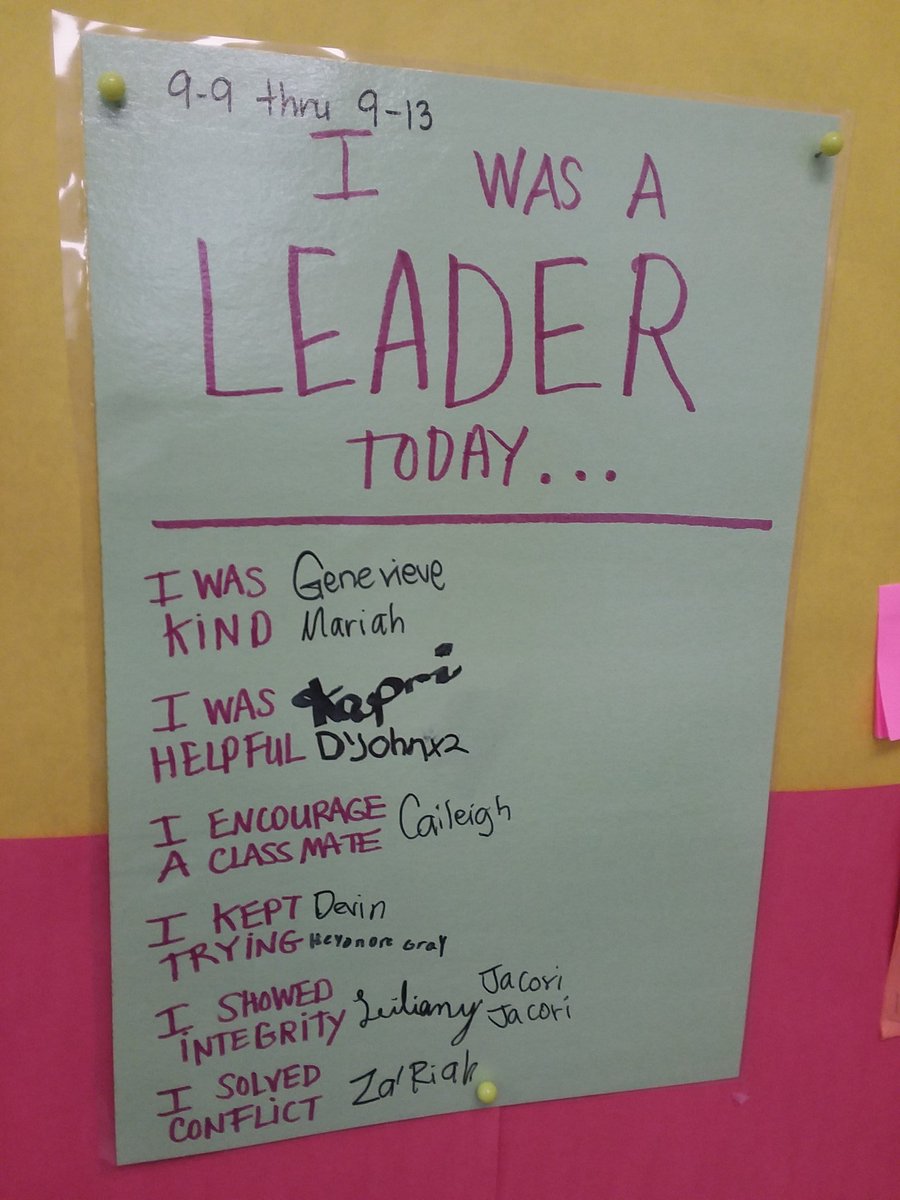 9-9 thru 9-13
I WAS A
LEADER
TODAY...
I WAS Genevieve
KIND Mariah
I WAS Kapri
HELPFUL D'Johnx2
I ENCOURAGE Caileigh
A CLASSMATE
I KEPT Devin
TRYING Gray
I SHOWED Jacori
INTEGRITY Leiliany Jacori
I SOLVED Za'Riah
CONFLICT